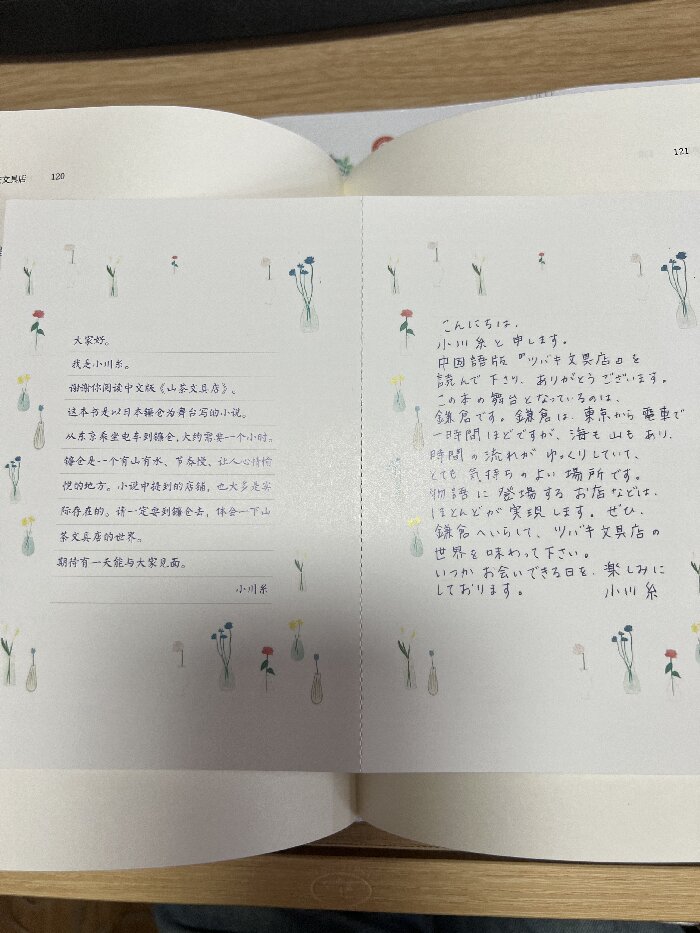 文具店 120
121
大家好。
我是小川糸。
谢谢你阅读中文版《山茶文具店》。
这本书是以日本镰仓为舞台写的小说。
从东京乘坐电车到镰仓,大约需要一个小时。
镰仓是一个有山有水、节奏慢、让人心情愉
悦的地方。小说中提到的店铺,也大多是实
际存在的。请一定要到镰仓去,体会一下山
茶文具店的世界。
期待有一天能与大家见面。
小川糸
こんにちは、
小川糸と申します。
中国語版『ツバキ文具店』を
読んで下さり、ありがとうございます。
この本の舞台となっているのは、
鎌倉です。鎌倉は、東京から電車で
一時間ほどですが、海も山もあり、
時間の流れがゆっくりしていて、
とても気持ちのよい場所です。
物語に登場するお店などは、
ほとんどが実現します。ぜひ、
鎌倉へいらして、ツバキ文具店の
世界を味わって下さい。
いつかお会いできる日を、楽しみに
しております。 小川糸